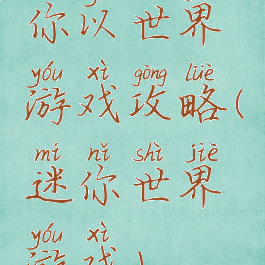 你以世界
yóu xì gōng lüè
游戏攻略(
mí nǐ shì jiè
迷你世界
yóu xì
游戏)